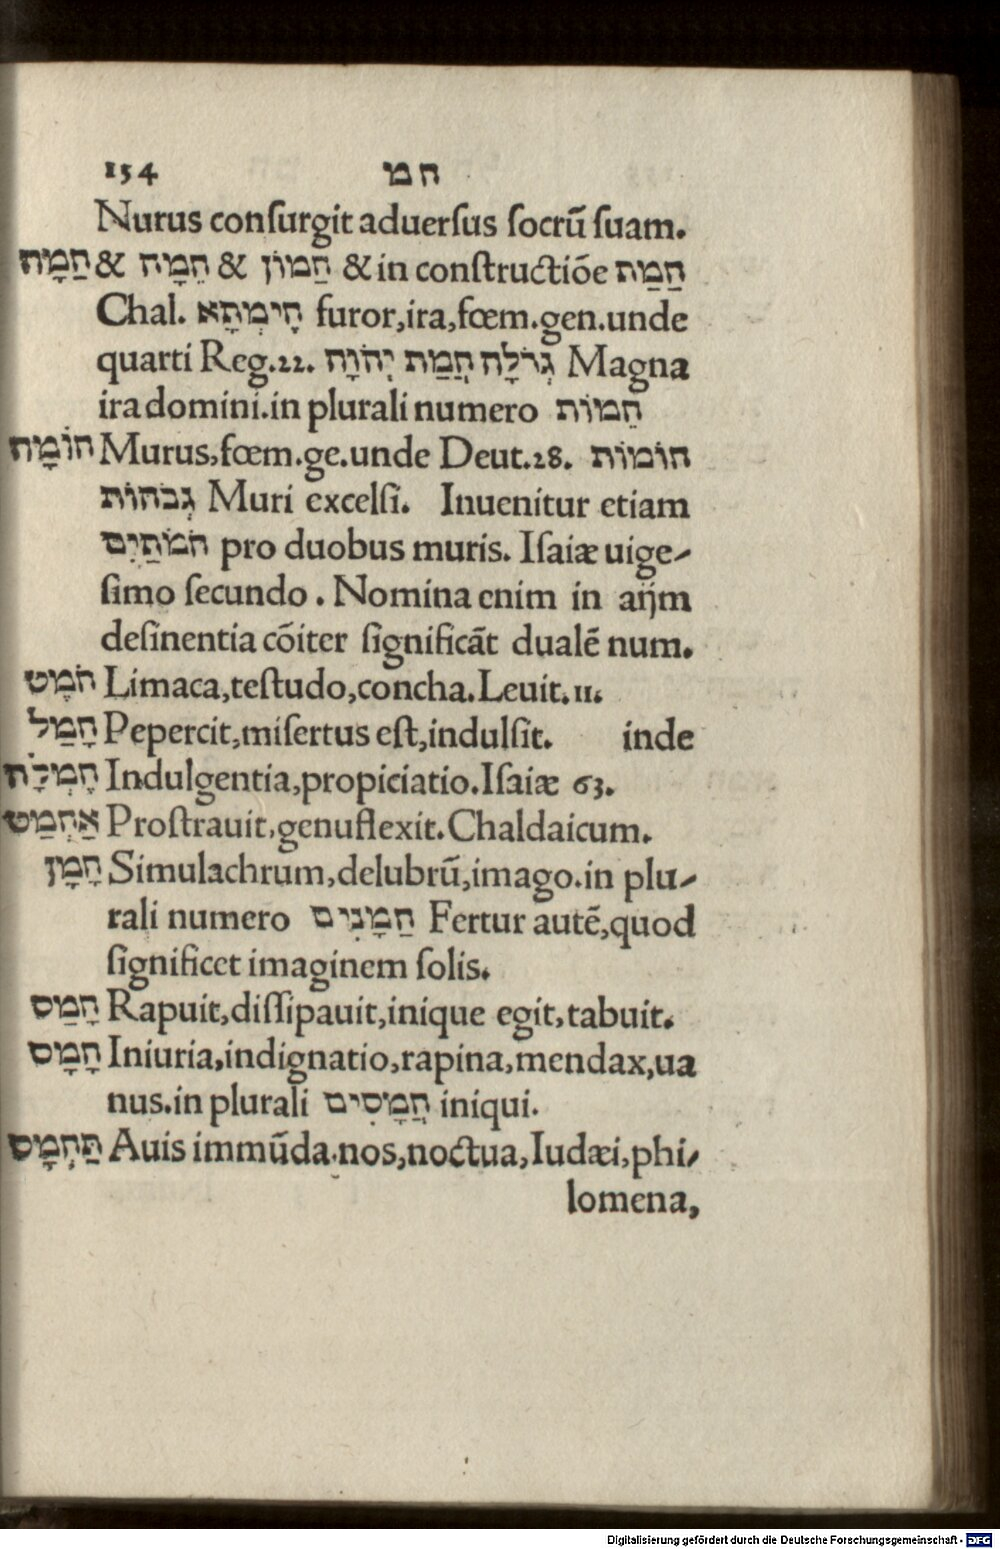 154 חמ
Nurus consurgit aduersus socrũ suam.
חַמָּה & חֵמָה & חַמוֹן & in constructiõe חַמַת
Chal. חָימְתָּא furor, ira, fœm. gen. unde
quarti Reg. 22. גְּדֹלָה חֲמַת יְהֹוָה Magna
ira domini. in plurali numero חֵמוֹת
חוֹמָה Murus, fœm. ge. unde Deut. 28. חוֹמוֹת
גְּבֹהוֹת Muri excelsi. Inuenitur etiam
חֹמֹתַיִם pro duobus muris. Isaiæ uige-
simo secundo. Nomina enim in aijm
desinentia cõiter significãt dualẽ num.
חֹמֶט Limaca, testudo, concha. Leuit. 11.
חָמַל Pepercit, misertus est, indulsit. inde
חֶמְלָה Indulgentia, propiciatio. Isaiæ 63.
אַחְמַט Prostrauit, genuflexit. Chaldaicum.
חָמָן Simulachrum, delubrũ, imago. in plu-
rali numero חַמָּנִים Fertur autẽ, quod
significet imaginem solis.
חָמַס Rapuit, dissipauit, inique egit, tabuit.
חָמָס Iniuria, indignatio, rapina, mendax, ua
nus. in plurali חֲמָסִים iniqui.
תַּחְמָס Auis immũda. nos, noctua, Iudæi, phi-
lomena,
Digitalisierung gefördert durch die Deutsche Forschungsgemeinschaft - DFG